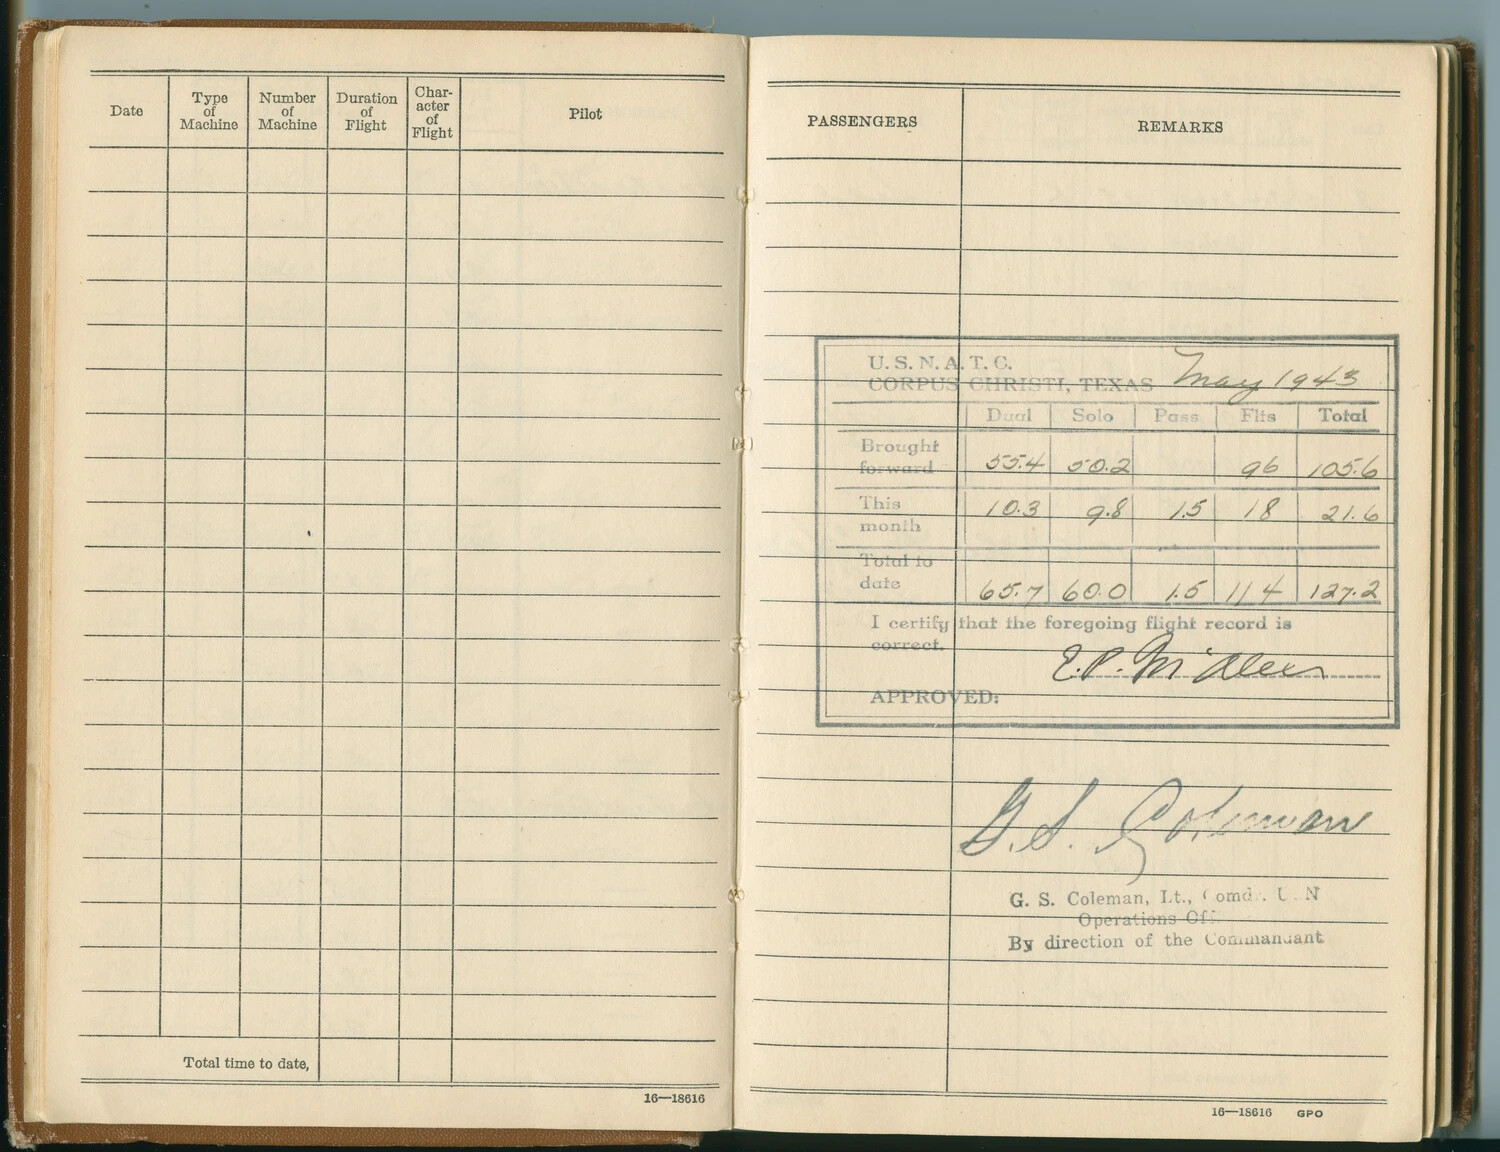 Date Type of Machine Number of Machine Duration of Flight Char- acter of Flight Pilot
Total time to date,
16—18616
PASSENGERS REMARKS
U. S. N. A. T. C.
CORPUS CHRISTI, TEXAS May 1943
Dual Solo Pass Flts Total
Brought forward 55.4 50.2 96 105.6
This month 10.3 9.8 1.5 18 21.6
Total to date 65.7 60.0 1.5 114 127.2
I certify that the foregoing flight record is
correct.
E.P.
APPROVED:
G. S. Coleman
G. S. Coleman, Lt., Comdr. U. N
Operations Off
By direction of the Commandant
16—18616 GPO